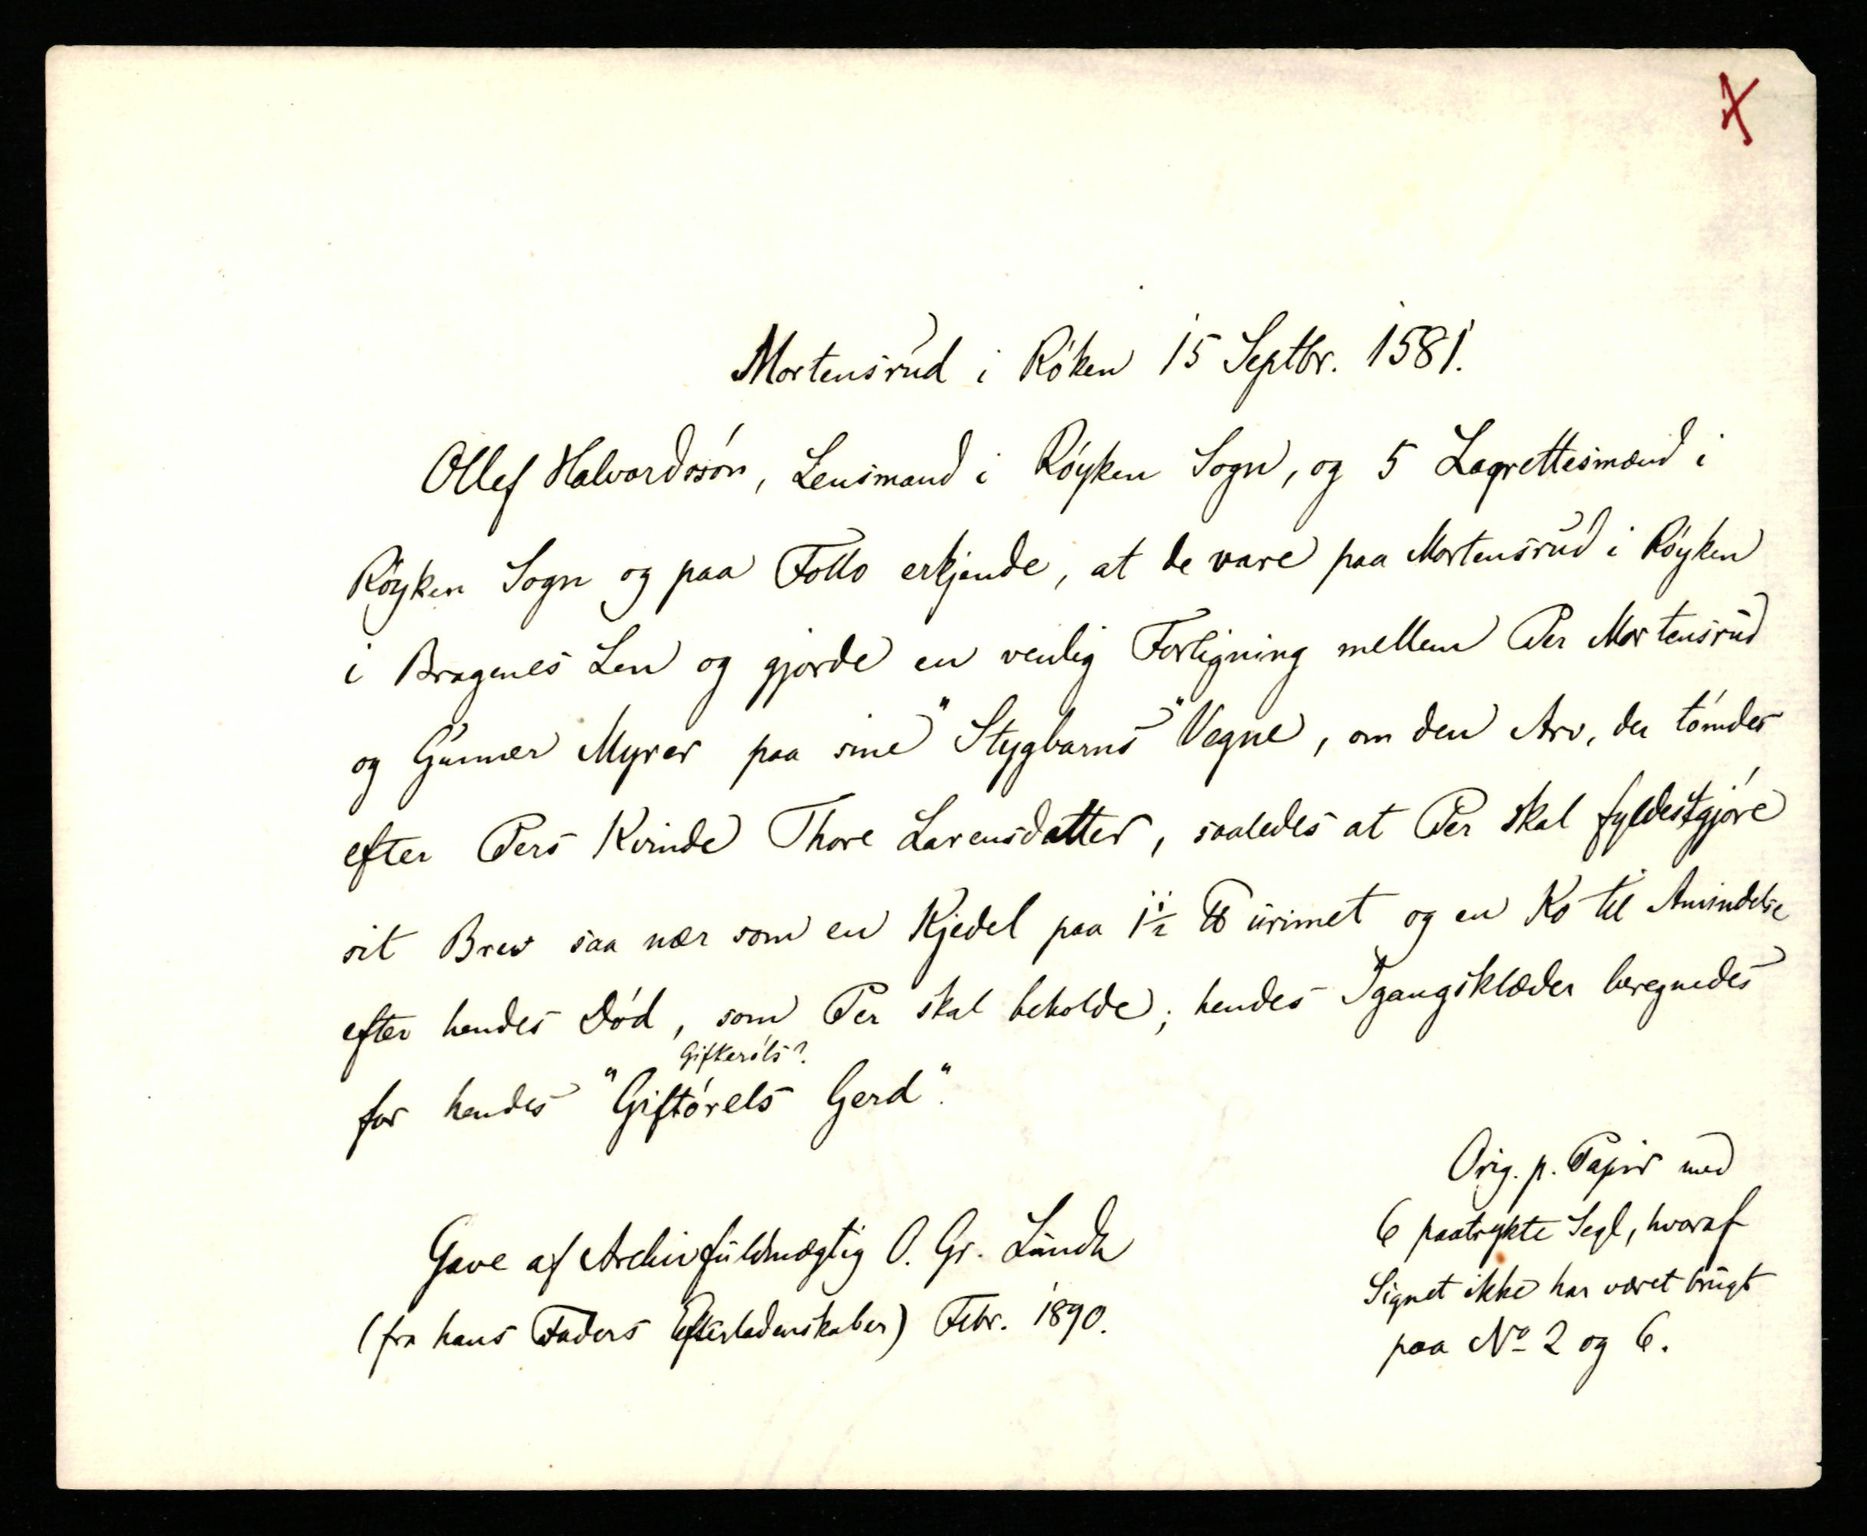 Mortensrud i Röken 15 Septbr. 1581.
Ollef Halvordssön, Lensmand i Röyken Sogn, og 5 Lagrettesmænd i
Röyken Sogn og paa Follo erkjende, at de vare paa Mortensrud i Röyken
i Bragenes Len og gjorde en venlig Forligning mellem Per Mortensrud
og Gunner Myrer paa sine "Stygbarns" Vegne, om den Arv, der tömdes
efter Pers Kvinde Thore Larensdatter, saaledes at Per skal fyldestgjöre
sit Brev saa nær som en Kjedel paa 1½ ℔ urimet og en Ko til Amindelse
efter hendes Död, som Per skal beholde; hendes Igangsklæder beregnedes
Gifkeröls?
for hendes "Giftörels Gerd".
Orig. p. Papir med
6 paatrykte Segl, hvoraf
Signet ikke har været brugt
paa No 2 og 6.
Gave af Archivfuldmægtig O. Gr. Lundh
(fra hans Faders Efterladenskaber) Febr. 1890.